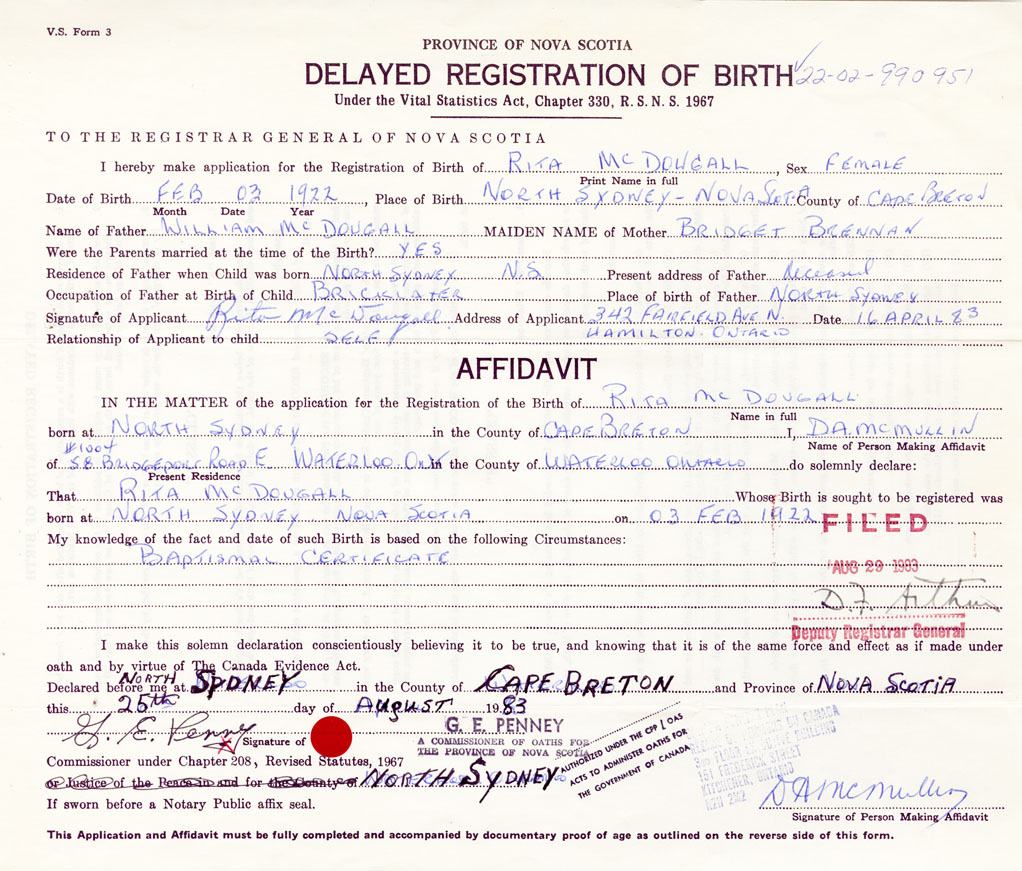 V.S. Form 3
PROVINCE OF NOVA SCOTIA
DELAYED REGISTRATION OF BIRTH 22-02-990951
Under the Vital Statistics Act, Chapter 330, R.S.N.S. 1967
TO THE REGISTRAR GENERAL OF NOVA SCOTIA
I hereby make application for the Registration of Birth of RITA MCDOUGALL, Sex FEMALE
Print Name in full
Date of Birth FEB 03 1922, Place of Birth NORTH SYDNEY - NOVA SCOTIA County of CAPE BRETON
Month Date Year
Name of Father WILLIAM MCDOUGALL MAIDEN NAME of Mother BRIDGET BRENNAN
Were the Parents married at the time of the Birth? YES
Residence of Father when Child was born NORTH SYDNEY N.S. Present address of Father deceased
Occupation of Father at Birth of Child BRICKLAYER Place of birth of Father NORTH SYDNEY
Signature of Applicant Rita McDougall Address of Applicant 342 FAIRFIELD AVE N. Date 16 APRIL 83
Relationship of Applicant to child SELF HAMILTON ONTARIO
AFFIDAVIT
IN THE MATTER of the application for the Registration of the Birth of RITA MCDOUGALL
Name in full
born at NORTH SYDNEY in the County of CAPE BRETON I, D.A. MCMULLIN
Name of Person Making Affidavit
#1004
of 58 BRIDGEPORT ROAD E WATERLOO ONT in the County of WATERLOO ONTARIO do solemnly declare:
Present Residence
That RITA MCDOUGALL Whose Birth is sought to be registered was
born at NORTH SYDNEY NOVA SCOTIA on 03 FEB 1922
FILED
My knowledge of the fact and date of such Birth is based on the following Circumstances:
BAPTISMAL CERTIFICATE
AUG 29 1983
D.F. Arthur
Deputy Registrar General
I make this solemn declaration conscientiously believing it to be true, and knowing that it is of the same force and effect as if made under
oath and by virtue of The Canada Evidence Act.
Declared before me at NORTH SYDNEY in the County of CAPE BRETON and Province of NOVA SCOTIA
this 25th day of AUGUST 1983
G. E. Penney Signature of
G. E. PENNEY
A COMMISSIONER OF OATHS FOR
THE PROVINCE OF NOVA SCOTIA
AUTHORIZED UNDER THE CPP / OAS
ACTS TO ADMINISTER OATHS FOR
THE GOVERNMENT OF CANADA
Commissioner under Chapter 208, Revised Statutes, 1967
or Justice of the Peace in and for the County of NORTH SYDNEY
If sworn before a Notary Public affix seal.
CANADA
BUILDING
FLOOR
151 FREDERICK STREET
KITCHENER, ONTARIO
N2H 2M2
DA McMullin
Signature of Person Making Affidavit
This Application and Affidavit must be fully completed and accompanied by documentary proof of age as outlined on the reverse side of this form.